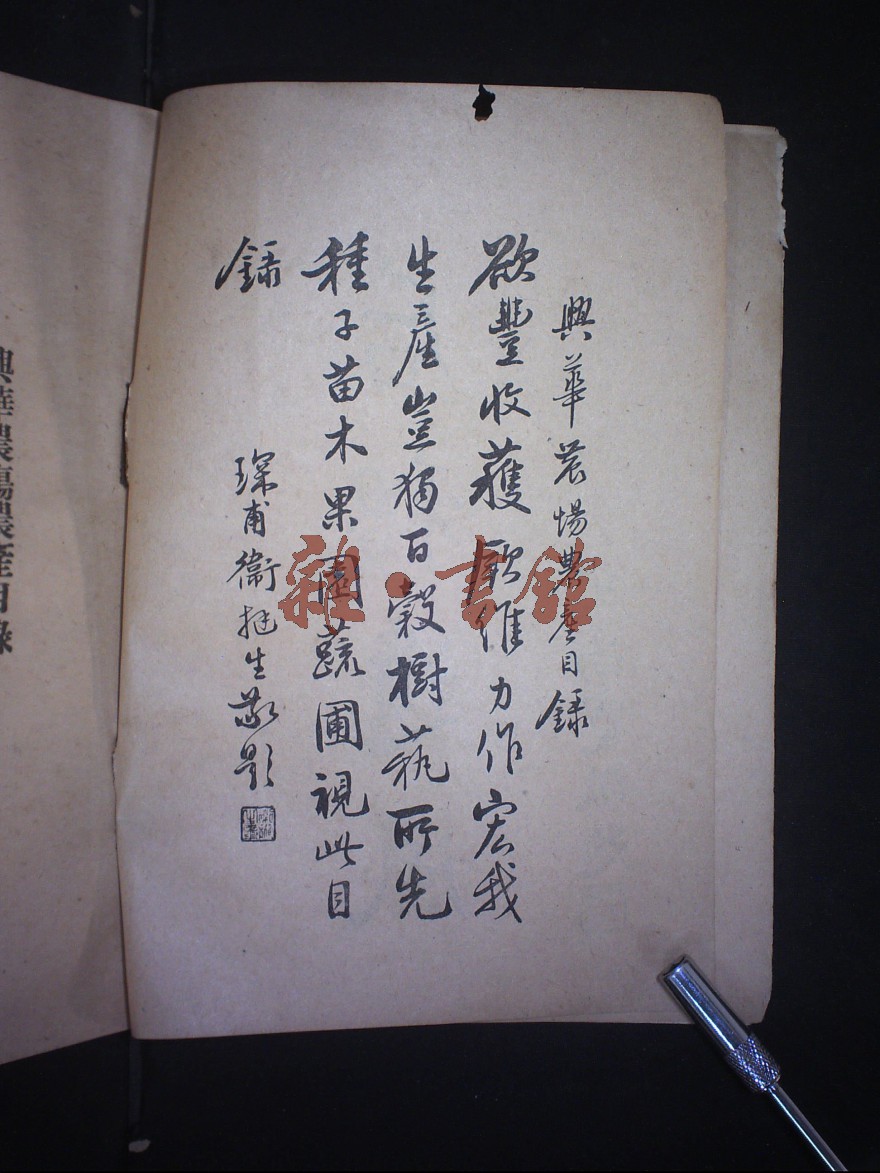 興華農場農產目錄
欲豐收穫厥維力作宏我
生產豈獨百穀樹蓺所先
種子苗木果園蔬圃視此目
錄
琛甫衞挺生敬題
興華農場農產目錄
雜·書館